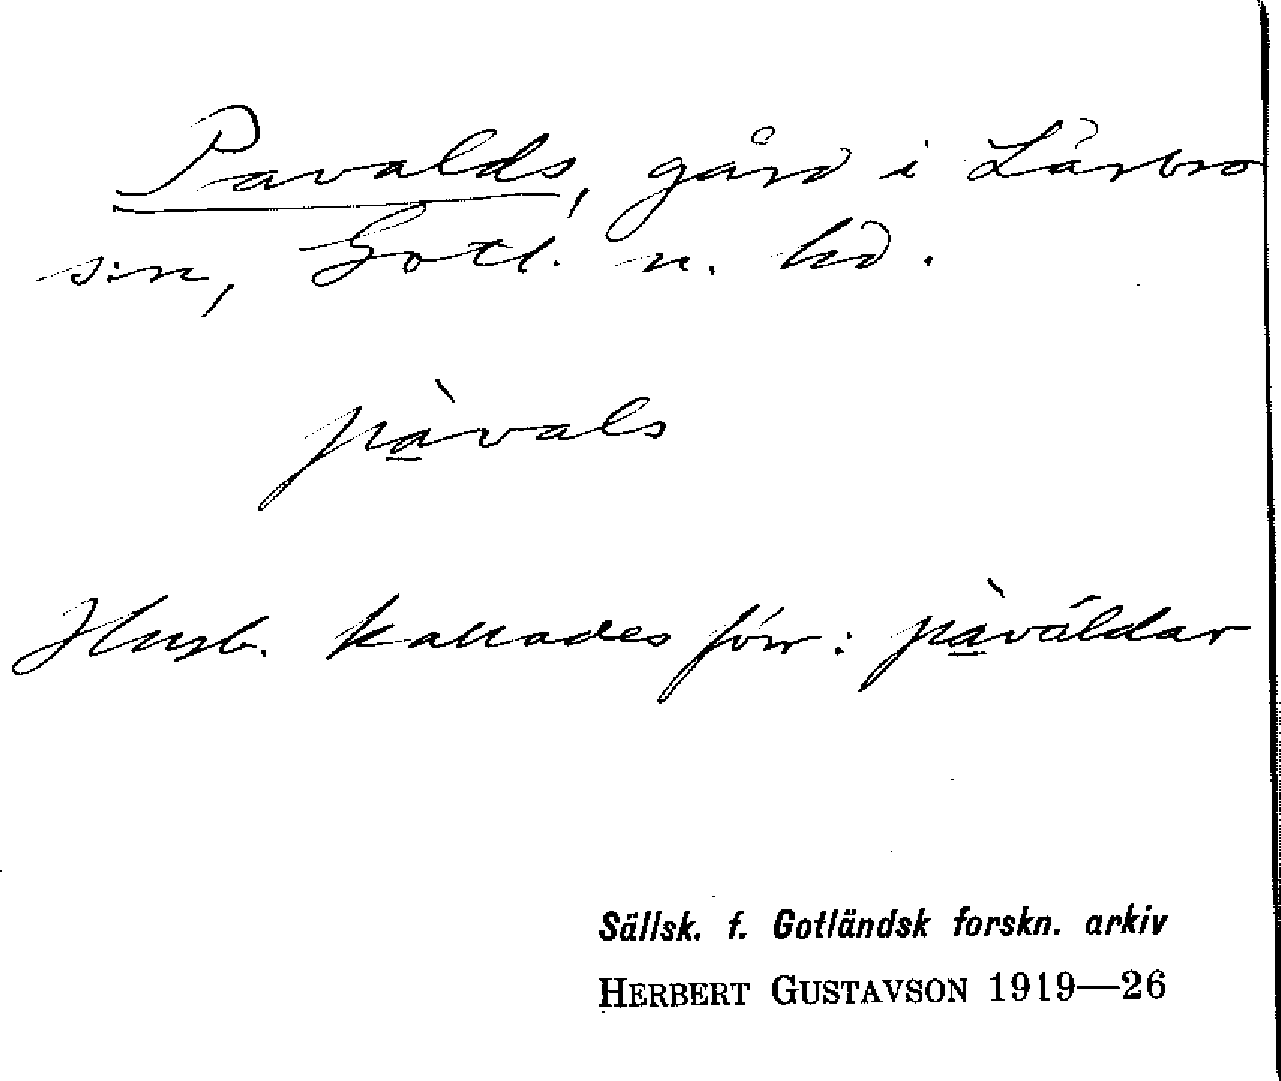 Pavalds, gård i Lärbro
s:n, Gotl. n. hd.
pàvals
Husb. kallades förr: pàväldar
Sällsk. f. Gotländsk forskn. arkiv
HERBERT GUSTAVSON 1919—26